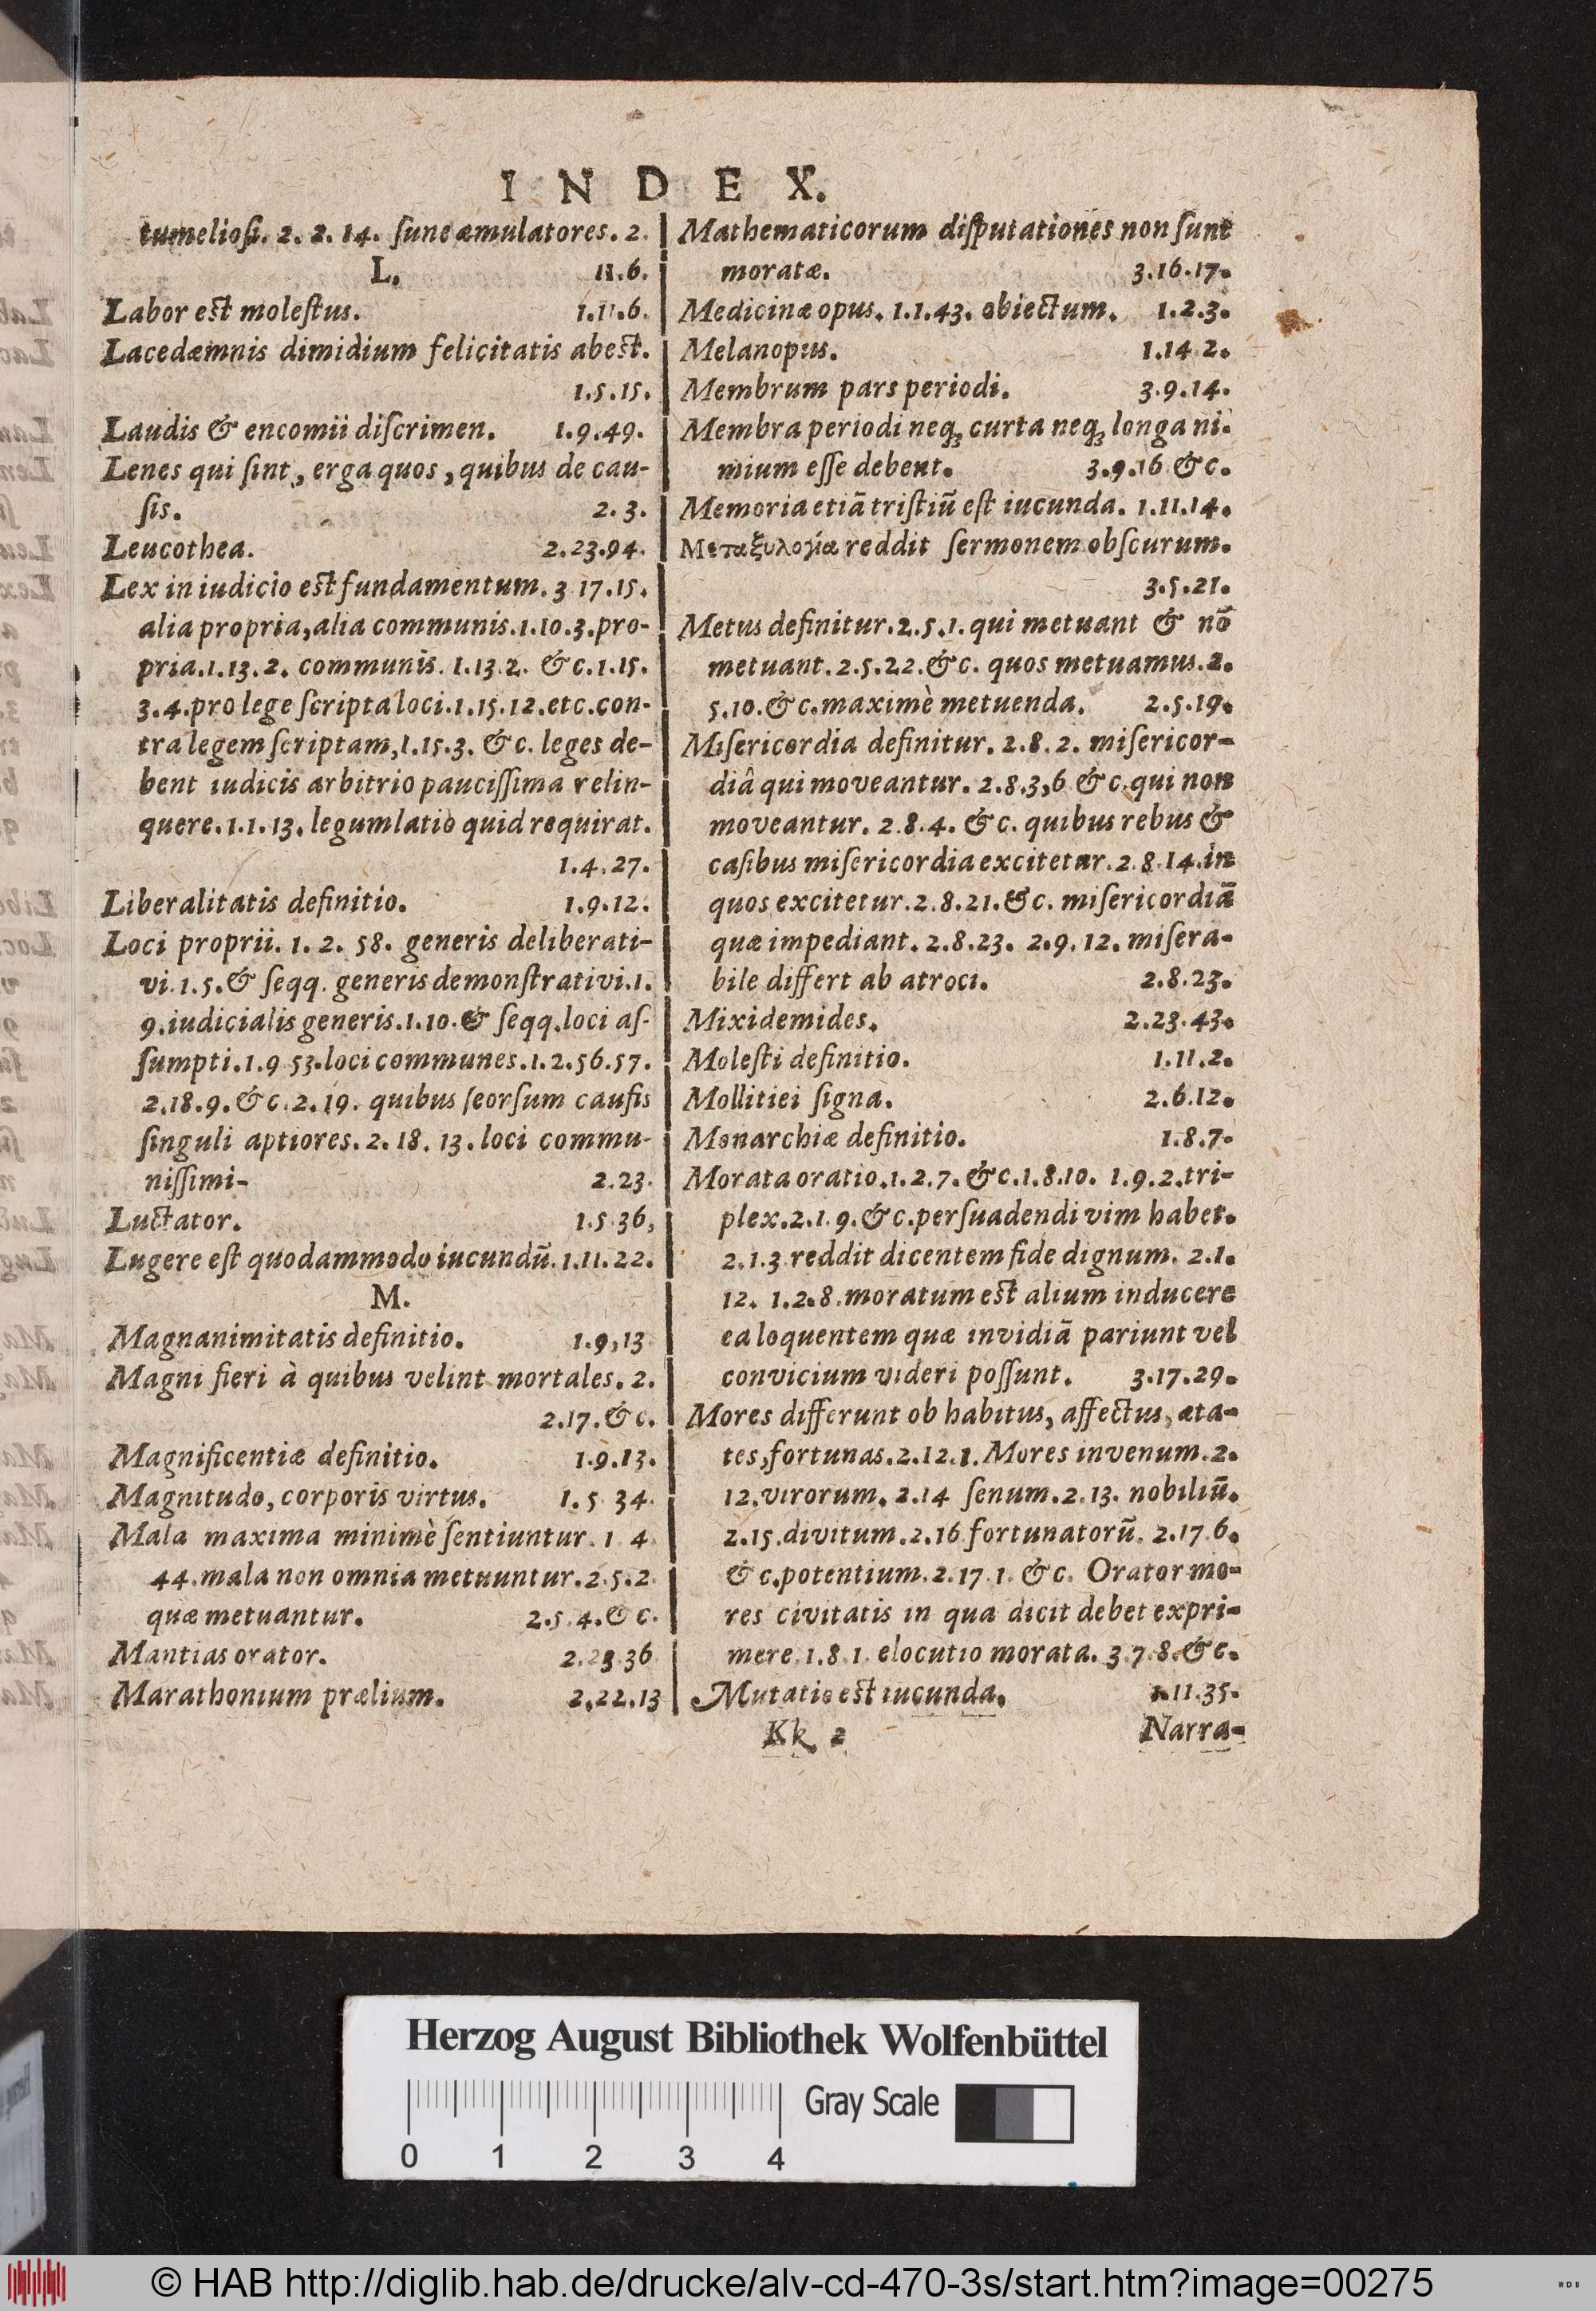 INDEX.
tumeliosi. 2. 2. 14. sunt æmulatores. 2.
L. 11.6.
Labor est molestus. 1.11.6.
Lacedæmnis dimidium felicitatis abest.
1.5.15.
Laudis & encomii discrimen. 1.9.49.
Lenes qui sint, erga quos, quibus de cau-
sis. 2.3.
Leucothea. 2.23.94.
Lex in iudicio est fundamentum. 3 17.15.
alia propria, alia communis. 1.10.3. pro-
pria. 1.13.2. communis. 1.13.2. &c. 1.15.
3.4. pro lege scripta loci. 1.15.12. etc. con-
tra legem scriptam, 1.15.3. &c. leges de-
bent iudicis arbitrio paucissima relin-
quere. 1.1.13. legum latio quid requirat.
1.4.27.
Liberalitatis definitio. 1.9.12.
Loci proprii. 1. 2. 58. generis deliberati-
vi. 1.5. & seqq. generis demonstrativi. 1.
9. iudicialis generis. 1.10. & seqq. loci as-
sumpti. 1.9 53. loci communes. 1.2.56.57.
2.18.9. &c. 2.19. quibus seorsum causis
singuli aptiores. 2.18. 13. loci commu-
nissimi- 2.23.
Luctator. 1.5 36,
Lugere est quodammodo iucundũ. 1.11.22.
M.
Magnanimitatis definitio. 1.9,13
Magni fieri à quibus velint mortales. 2.
2.17. &c.
Magnificentiæ definitio. 1.9.13.
Magnitudo, corporis virtus. 1.5 34.
Mala maxima minimè sentiuntur. 1 4
44. mala non omnia metuuntur. 2.5.2.
quæ metuantur. 2.5.4. &c.
Mantias orator. 2.23 36
Marathonium prælium. 2.22.13
Mathematicorum disputationes non sunt
moratæ. 3.16.17.
Medicinæ opus. 1.1.43. obiectum. 1.2.3.
Melanopus. 1.14 2.
Membrum pars periodi. 3.9.14.
Membra periodi neq; curta neq; longa ni-
mium esse debent. 3.9.16 &c.
Memoria etiã tristiũ est iucunda. 1.11.14.
Μεταξυλογία reddit sermonem obscurum.
3.5.21.
Metus definitur. 2.5.1. qui metuant & nõ
metuant. 2.5.22. &c. quos metuamus. 2.
5.10. &c. maximè metuenda. 2.5.19.
Misericordia definitur. 2.8.2. misericor-
diâ qui moveantur. 2.8.3,6 &c. qui non
moveantur. 2.8.4. &c. quibus rebus &
casibus misericordia excitetur. 2.8.14. in
quos excitetur. 2.8.21. &c. misericordiã
quæ impediant. 2.8.23. 2.9.12. misera-
bile differt ab atroci. 2.8.23.
Mixidemides. 2.23.43.
Molesti definitio. 1.11.2.
Mollitiei signa. 2.6.12.
Monarchiæ definitio. 1.8.7.
Morata oratio. 1.2.7. &c. 1.8.10. 1.9.2. tri-
plex. 2.1.9. &c. persuadendi vim habet.
2.1.3 reddit dicentem fide dignum. 2.1.
12. 1.2.8. moratum est alium inducere
ea loquentem quæ invidiã pariunt vel
convicium videri possunt. 3.17.29.
Mores differunt ob habitus, affectus, æta-
tes, fortunas. 2.12.1. Mores invenum. 2.
12. virorum. 2.14 senum. 2.13. nobiliũ.
2.15. divitum. 2.16 fortunatorũ. 2.17 6.
&c. potentium. 2.17 1. &c. Orator mo-
res civitatis in qua dicit debet expri-
mere. 1.8.1. elocutio morata. 3.7.8. &c.
Mutatio est iucunda. 1.11.35.
Kk 2 Narra-
Herzog August Bibliothek Wolfenbüttel
Gray Scale
0 1 2 3 4
© HAB http://diglib.hab.de/drucke/alv-cd-470-3s/start.htm?image=00275
WDB